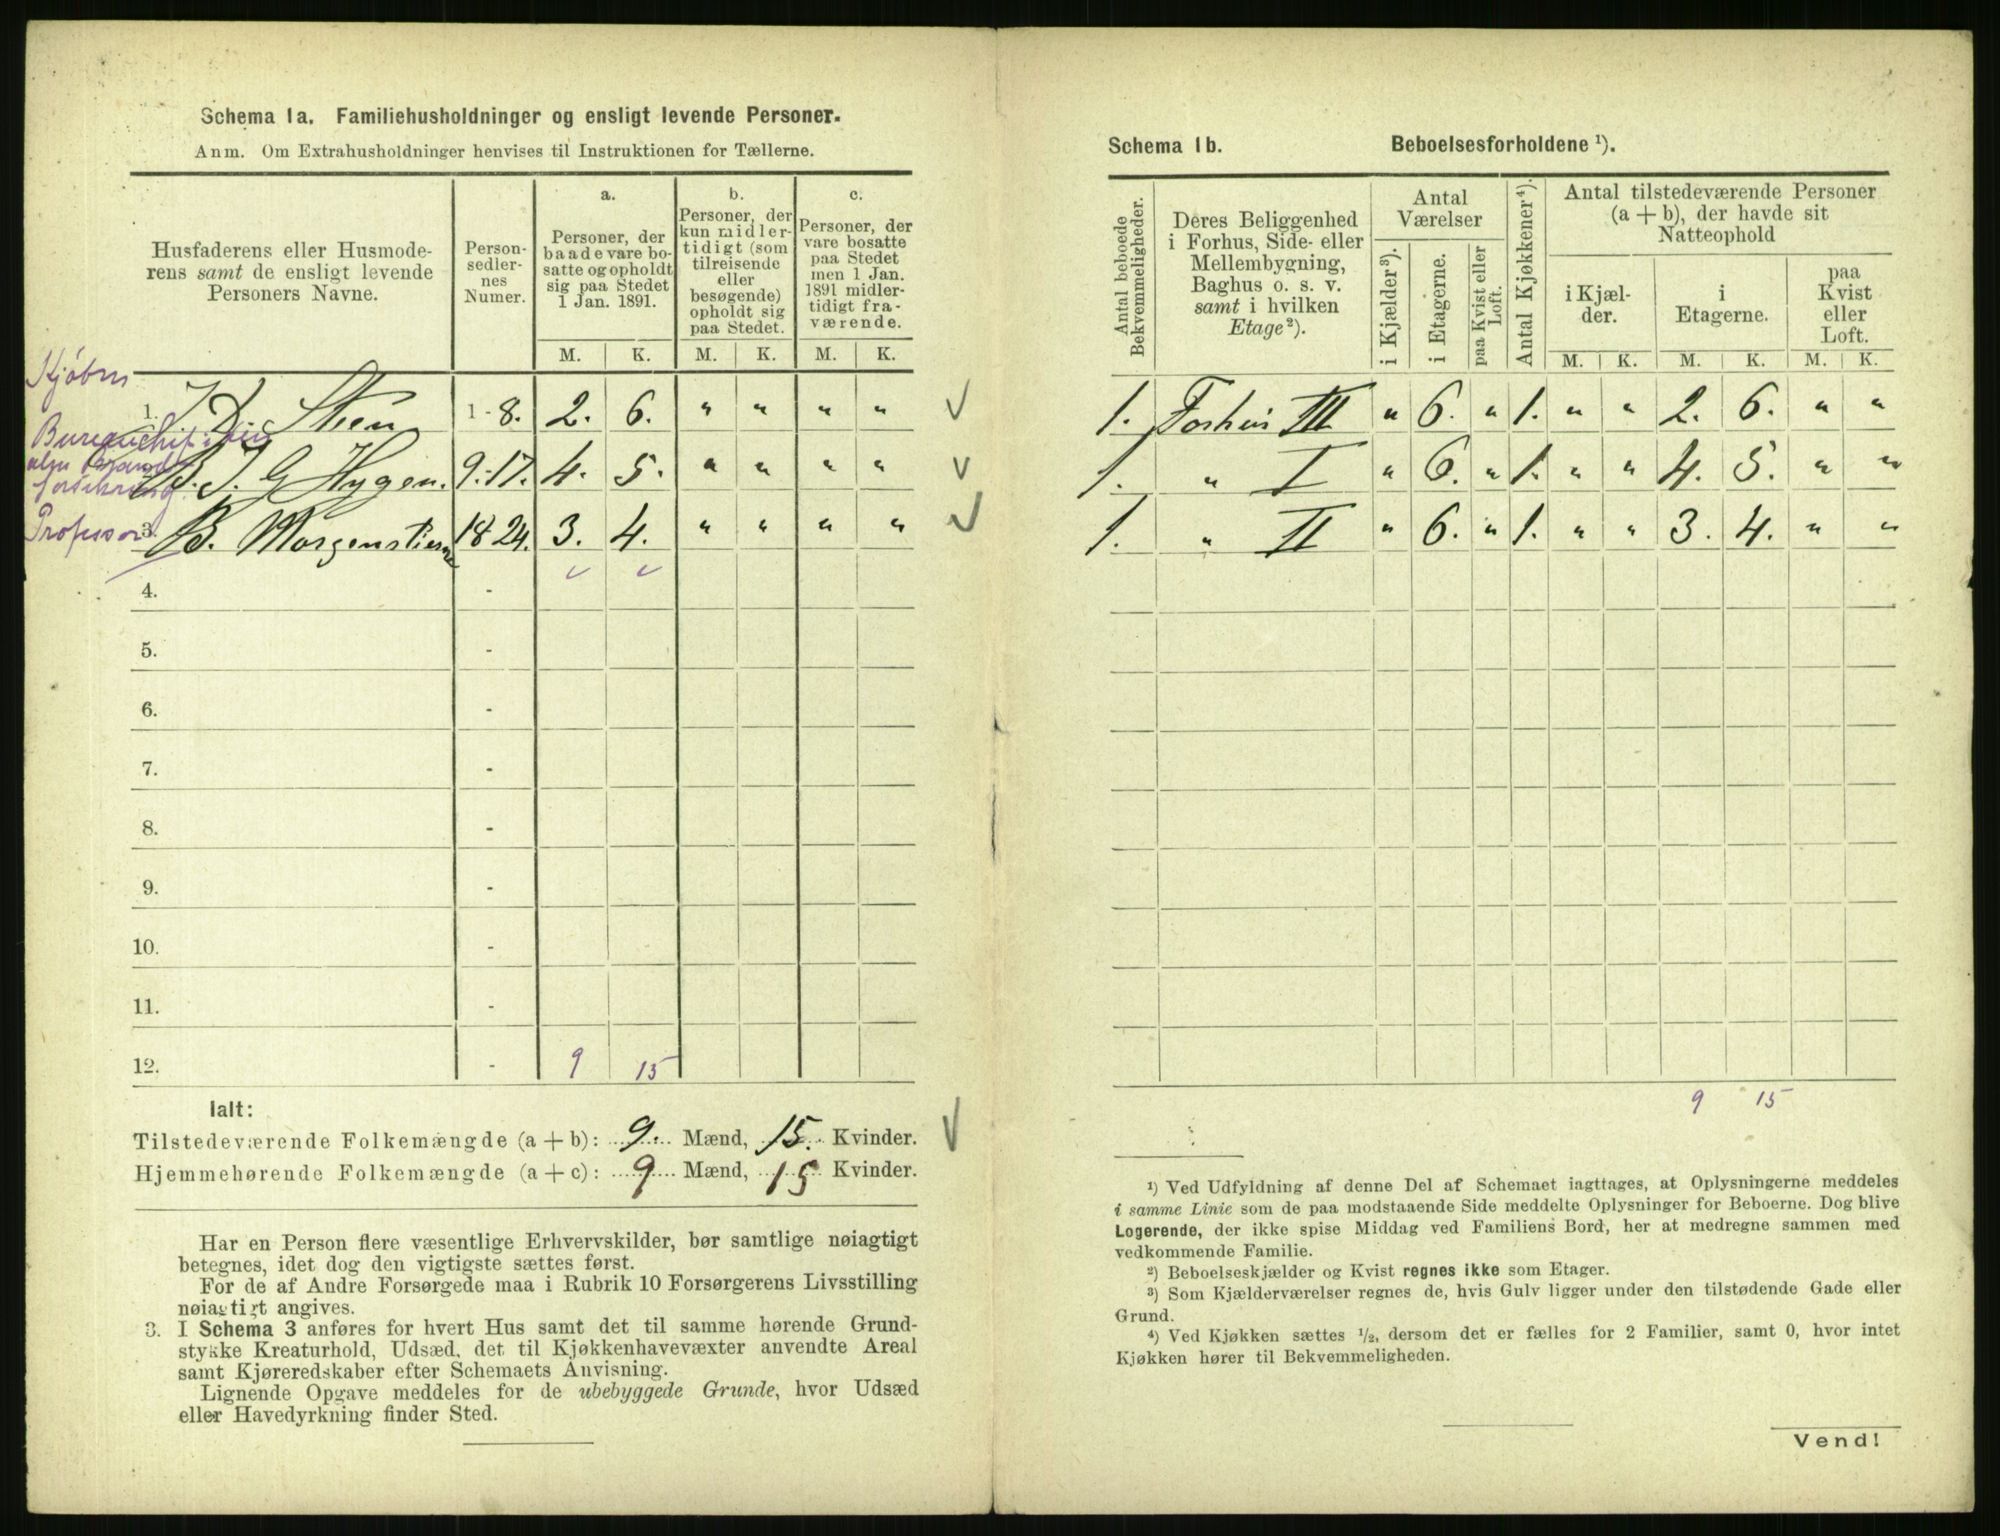 Schema 1a. Familiehusholdninger og ensligt levende Personer.
Anm. Om Extrahusholdninger henvises til Instruktionen for Tællerne.
Husfaderens eller Husmode-
rens samt de ensligt levende
Personers Navne.
Person-
sedler-
nes
Numer.
a.
Personer, der
baade vare bo-
satte og opholdt
sig paa Stedet
1 Jan. 1891.
b.
Personer, der
kun midler-
tidigt (som
tilreisende
eller
besøgende)
opholdt sig
paa Stedet.
c.
Personer, der
vare bosatte
paa Stedet
men 1 Jan.
1891 midler-
tidigt fra-
værende.
M. K. M. K. M. K.
Kjøbm
1. J. D. Steen 1-8. 2. 6. " " " "
Bureauchef i den
alm Brand
forsikring.
B. J. G Hygen. 9.-17. 4. 5. " " " "
Professor
3. B. Morgenstierne 18-24. 3. 4. " " " "
4. -
5. -
6. -
7. -
8. -
9. -
10. -
11. -
12. - 9 15
Ialt:
Tilstedeværende Folkemængde (a + b): 9. Mænd, 15. Kvinder.
Hjemmehørende Folkemængde (a + c): 9 Mænd, 15 Kvinder.
Har en Person flere væsentlige Erhvervskilder, bør samtlige nøiagtigt
betegnes, idet dog den vigtigste sættes først.
For de af Andre Forsørgede maa i Rubrik 10 Forsørgerens Livsstilling
nøiagtigt angives.
3. I Schema 3 anføres for hvert Hus samt det til samme hørende Grund-
stykke Kreaturhold, Udsæd, det til Kjøkkenhavevæxter anvendte Areal
samt Kjøreredskaber efter Schemaets Anvisning.
Lignende Opgave meddeles for de ubebyggede Grunde, hvor Udsæd
eller Havedyrkning finder Sted.
Schema 1b. Beboelsesforholdene ¹).
Antal beboede
Bekvemmeligheder.
Deres Beliggenhed
i Forhus, Side- eller
Mellembygning,
Baghus o. s. v.
samt i hvilken
Etage²).
Antal
Værelser
i Kjælder³).
i Etagerne.
paa Kvist eller
Loft.
Antal Kjøkkener⁴).
Antal tilstedeværende Personer
(a + b), der havde sit
Natteophold
i Kjæl-
der.
i
Etagerne.
paa
Kvist
eller
Loft.
M. K. M. K. M. K.
1. Forhus III " 6. " 1. " " 2. 6. " "
1. " I " 6. " 1. " " 4. 5. " "
1. " II " 6. " 1. " " 3. 4. " "
9 15
¹) Ved Udfyldning af denne Del af Schemaet iagttages, at Oplysningerne meddeles
i samme Linie som de paa modstaaende Side meddelte Oplysninger for Beboerne. Dog blive
Logerende, der ikke spise Middag ved Familiens Bord, her at medregne sammen med
vedkommende Familie.
²) Beboelseskjælder og Kvist regnes ikke som Etager.
³) Som Kjælderværelser regnes de, hvis Gulv ligger under den tilstødende Gade eller
Grund.
⁴) Ved Kjøkken sættes ½, dersom det er fælles for 2 Familier, samt 0, hvor intet
Kjøkken hører til Bekvemmeligheden.
Vend!